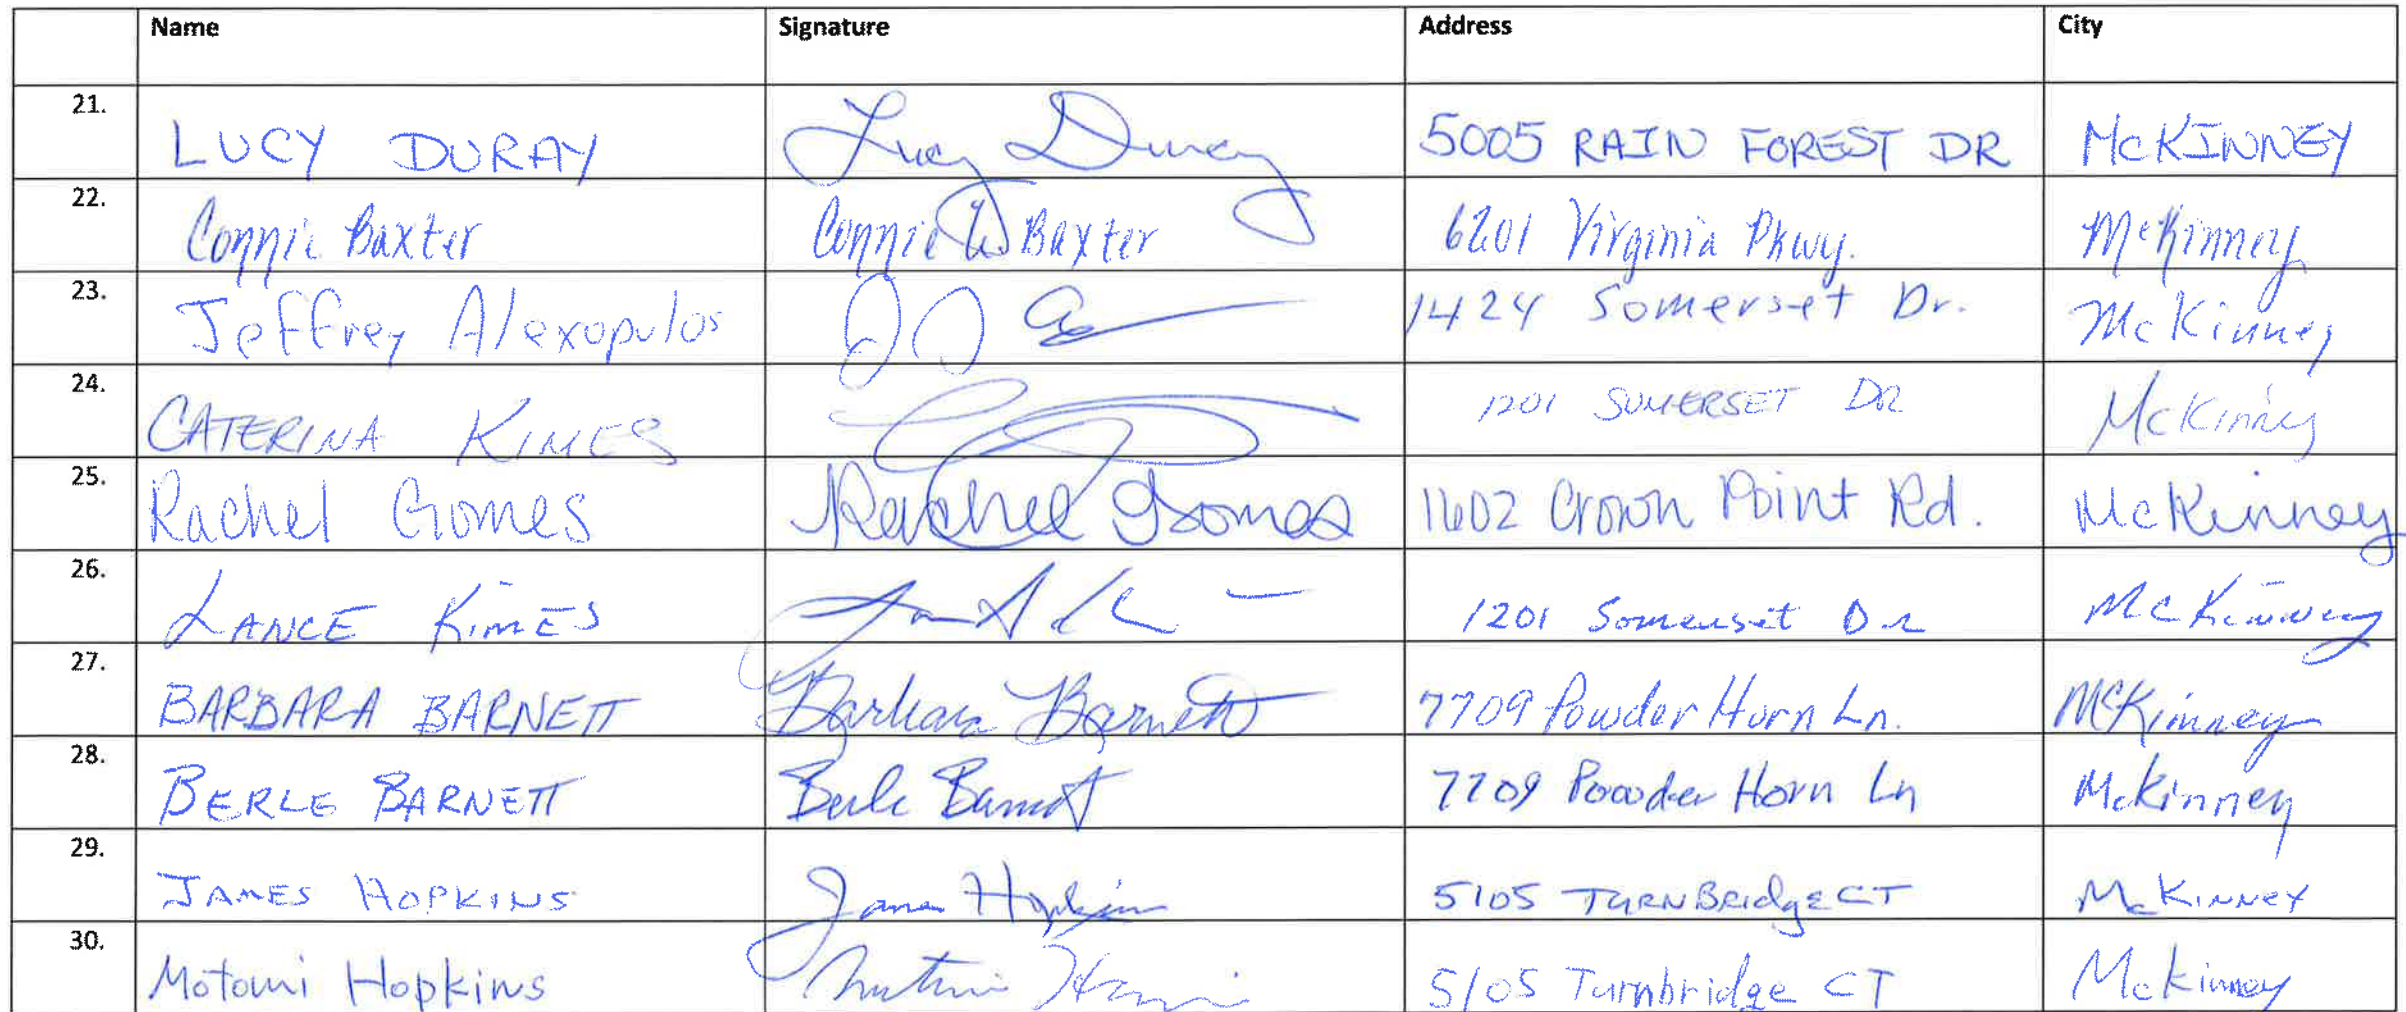 Name Signature Address City
21. LUCY DURAY Lucy Duray 5005 RAIN FOREST DR McKINNEY
22. Connie Baxter Connie W Baxter 6201 Virginia Pkwy. McKinney
23. Jeffrey Alexopulos 1424 Somerset Dr. McKinney
24. CATERINA KIMES 1201 SOMERSET DR McKinney
25. Rachel Gomes Rachel Gomes 1602 Crown Point Rd. McKinney
26. LANCE KIMES 1201 Somerset Dr McKinney
27. BARBARA BARNETT Barbara Barnett 7709 Powder Horn Ln. McKinney
28. BERLE BARNETT Berle Barnett 7709 Powder Horn Ln McKinney
29. JAMES HOPKINS James Hopkins 5105 TURNBRidgE CT McKINNEY
30. Motomi Hopkins 5105 Turnbridge CT McKinney